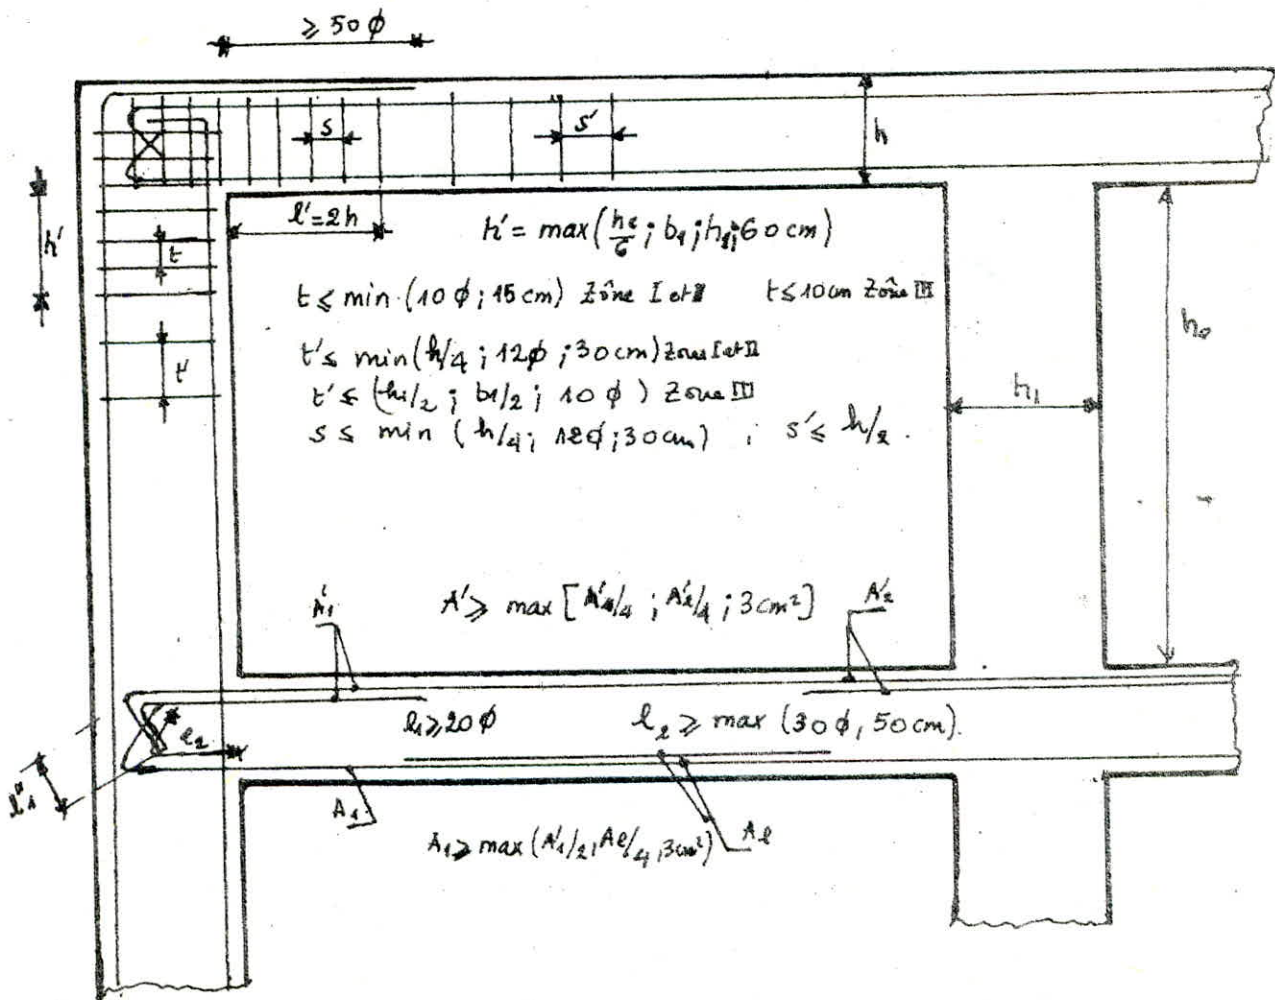 ≥ 50 ϕ
s
s'
h
h'
l'=2h
h' = max(he/6 ; b1 ; h1 ; 60 cm)
t
t ≤ min (10 ϕ ; 15 cm) Zône I et II t ≤ 10 cm Zône III
t'
t' ≤ min(h/4 ; 12ϕ ; 30 cm) Zone I et II
t' ≤ (h1/2 ; b1/2 ; 10 ϕ) Zone III
s ≤ min (h/4 ; 12ϕ ; 30 cm) ; s' ≤ h/2 .
h1
A'1
A' ≥ max [ /4 ; /4 ; 3 cm²]
A'2
l1 ≥ 20 ϕ
l2 ≥ max (30ϕ, 50 cm).
l2
A1
A1 ≥ max (A'1/2, Al/4, 3cm²)
Al